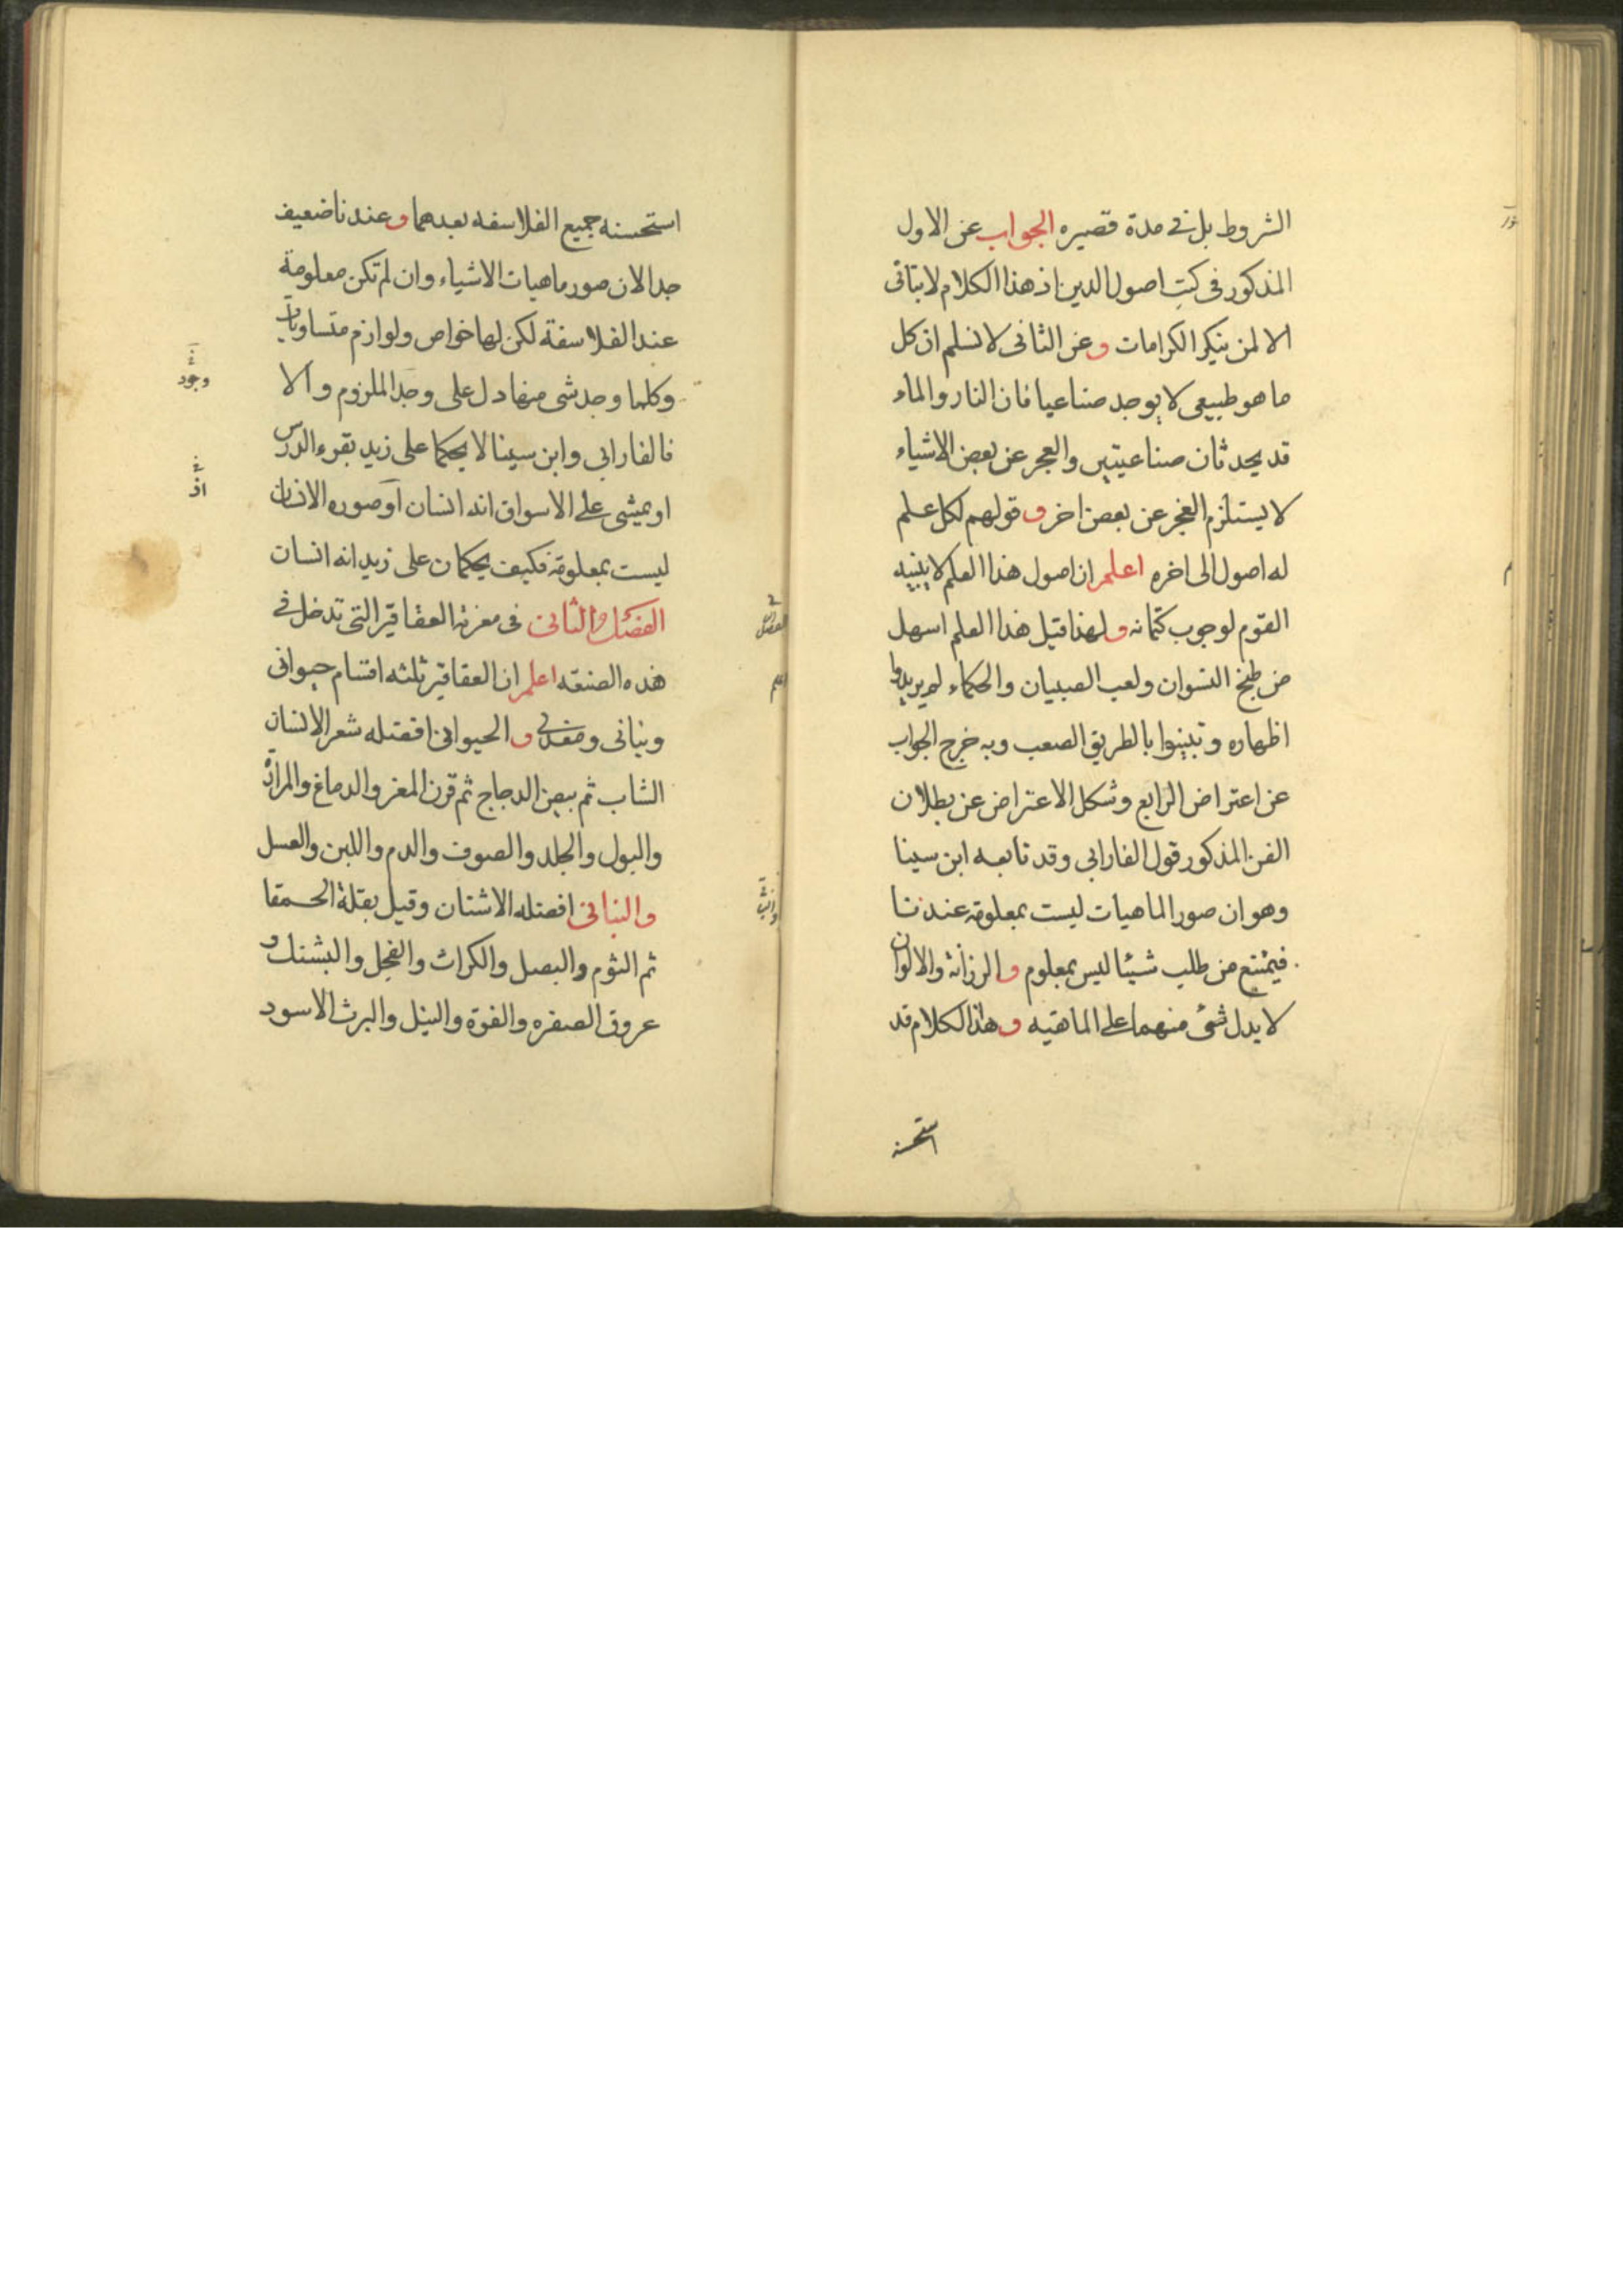 الشروط بل في مدة قصيره الجواب عن الاول
المذكور في كتب اصول الدين اذ هذا الكلام لا يتاتى
الا لمن ينكر الكرامات وعن الثانى لا نسلم ان كل
ما هو طبيعى لا يوجد صناعيا فان النار والماء
قد يحدثان صناعيتين والعجز عن بعض الاشياء
لا يستلزم العجز عن بعض اخر وقولهم لكل علم
له اصول الى اخره اعلم ان اصول هذا العلم لا يبينه
القوم لوجوب كتمانه ولهذا قيل هذا العلم اسهل
من طبخ النسوان ولعب الصبيان والحكماء لم يريدوا
اظهاره وتبينوا بالطريق الصعب وبه خرج الجواب
عن اعتراض الرابع وشكل الاعتراض عن بطلان
الفن المذكور قول الفارابى وقد تابعه ابن سينا
وهو ان صور الماهيات ليست بمعلومة عندنا
فيمتنع من طلب شيئا ليس بمعلوم والرزانة والالوان
لا يدل شئ منهما على الماهية وهذا الكلام قد
استحسنه
استحسنه جميع الفلاسفه بعدهما وعندنا ضعيف
جدا لان صور ماهيات الاشياء وان لم تكن معلومة
عند الفلاسفة لكن لها خواص ولوازم متساويات
وكلما وجد شى منها دل على وجد الملزوم والا
فالفارابى وابن سينا لا يحكما على زيد بقرء الدرس
او يمشى على الاسواق انه انسان او صوره الانسان
ليست بمعلومة فكيف يحكمان على زيد انه انسان
الفصل الثانى فى معرفة العقاقير التى تدخل فى
هذه الصنعه اعلم ان العقاقير ثلثه اقسام حيوانى
ونباتى ومعدنى والحيوانى افضله شعر الانسان
الشاب ثم بيض الدجاج ثم قرن المعز والدماغ والمرارة
والبول والجلد والصوف والدم واللبن والعسل
والنباتى افضله الاشنان وقيل بقلة الحمقا
ثم الثوم والبصل والكراث والفجل والبشنك و
عروق الصفره والفوة والنيل والبرث الاسود
وجود
اذ
الفصل